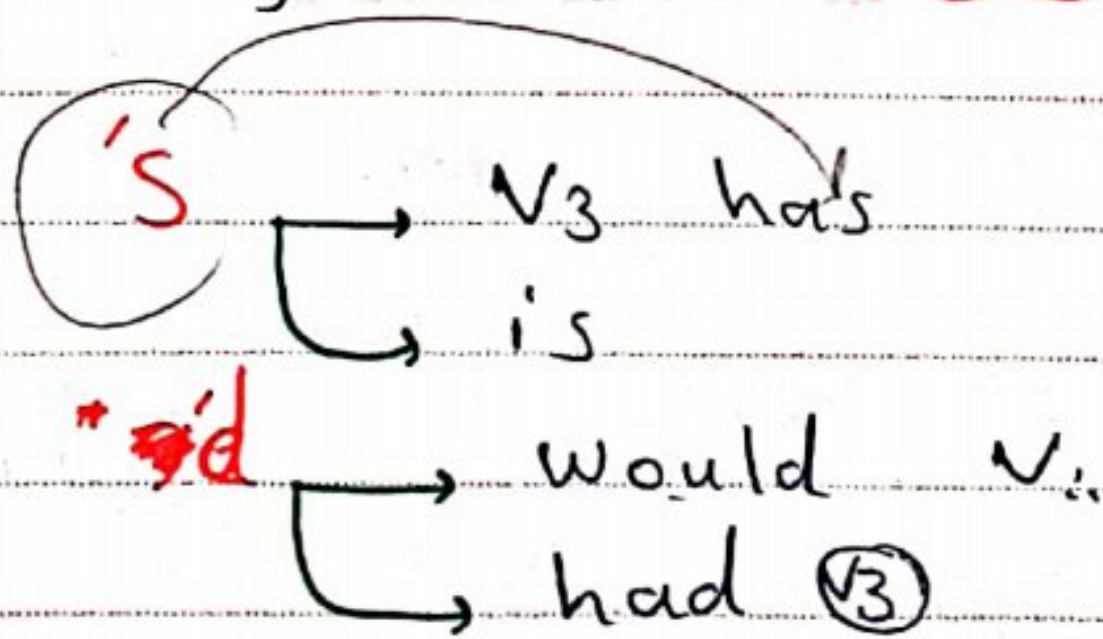 's V3 has
is
* 'd would V
had V3